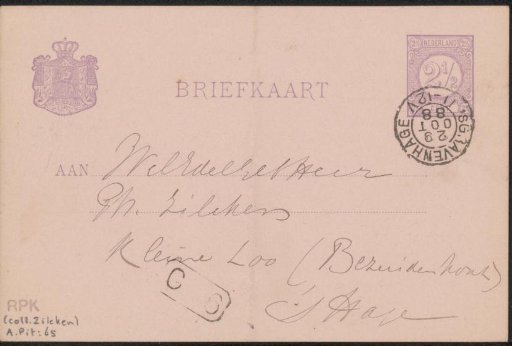 NEDERLAND
2 1/2
BRIEFKAART
'SGRAVENHAGE
29
OCT
88
11-12V
AAN WelEdelGeb Heer
Ph. Zilcken
Kleine Loo (Bezuidenhout)
's Hage
C 6
RPK
(coll. Zilcken)
A. Pit: 65